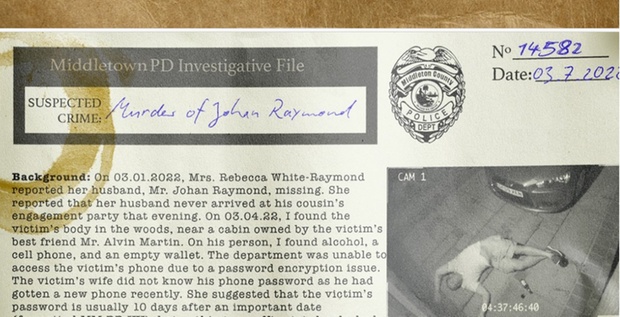 Middletown PD Investigative File
SUSPECTED CRIME: Murder of Johan Raymond
Middleton County
POLICE
DEPT
Nº 14582
Date: 03 7 202
Background: On 03.01.2022, Mrs. Rebecca White-Raymond
reported her husband, Mr. Johan Raymond, missing. She
reported that her husband never arrived at his cousin's
engagement party that evening. On 03.04.22, I found the
victim's body in the woods, near a cabin owned by the victim's
best friend Mr. Alvin Martin. On his person, I found alcohol, a
cell phone, and an empty wallet. The department was unable to
access the victim's phone due to a password encryption issue.
The victim's wife did not know his phone password as he had
gotten a new phone recently. She suggested that the victim's
password is usually 10 days after an important date
CAM 1
04:37:46:40